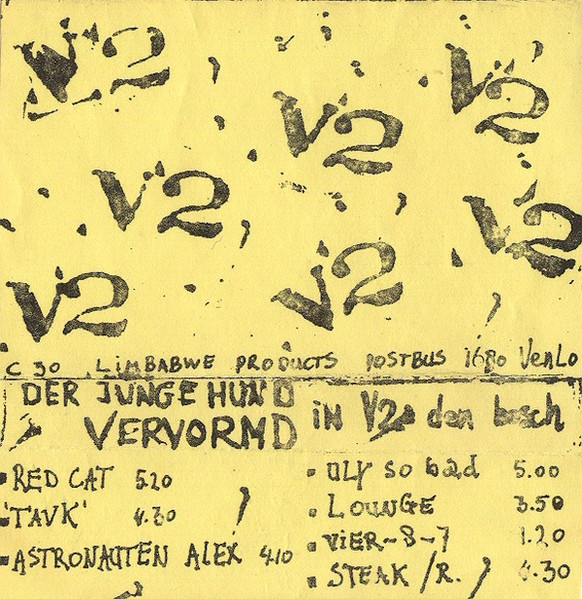 V2
V2
V2
V2
V2
V2
V2
C 30 LIMBABWE PRODUCTS POSTBUS 1680 VenLo
DER JUNGE HUND
VERVORMD
iN V2 den bosch
RED CAT 5.20
'TAVK' 4.30
ASTRONAUTEN ALEX 4.10
OLY SO bad 5.00
LOUNGE 3.50
VIER-8-7 1.20
STEAK /R. 4.30